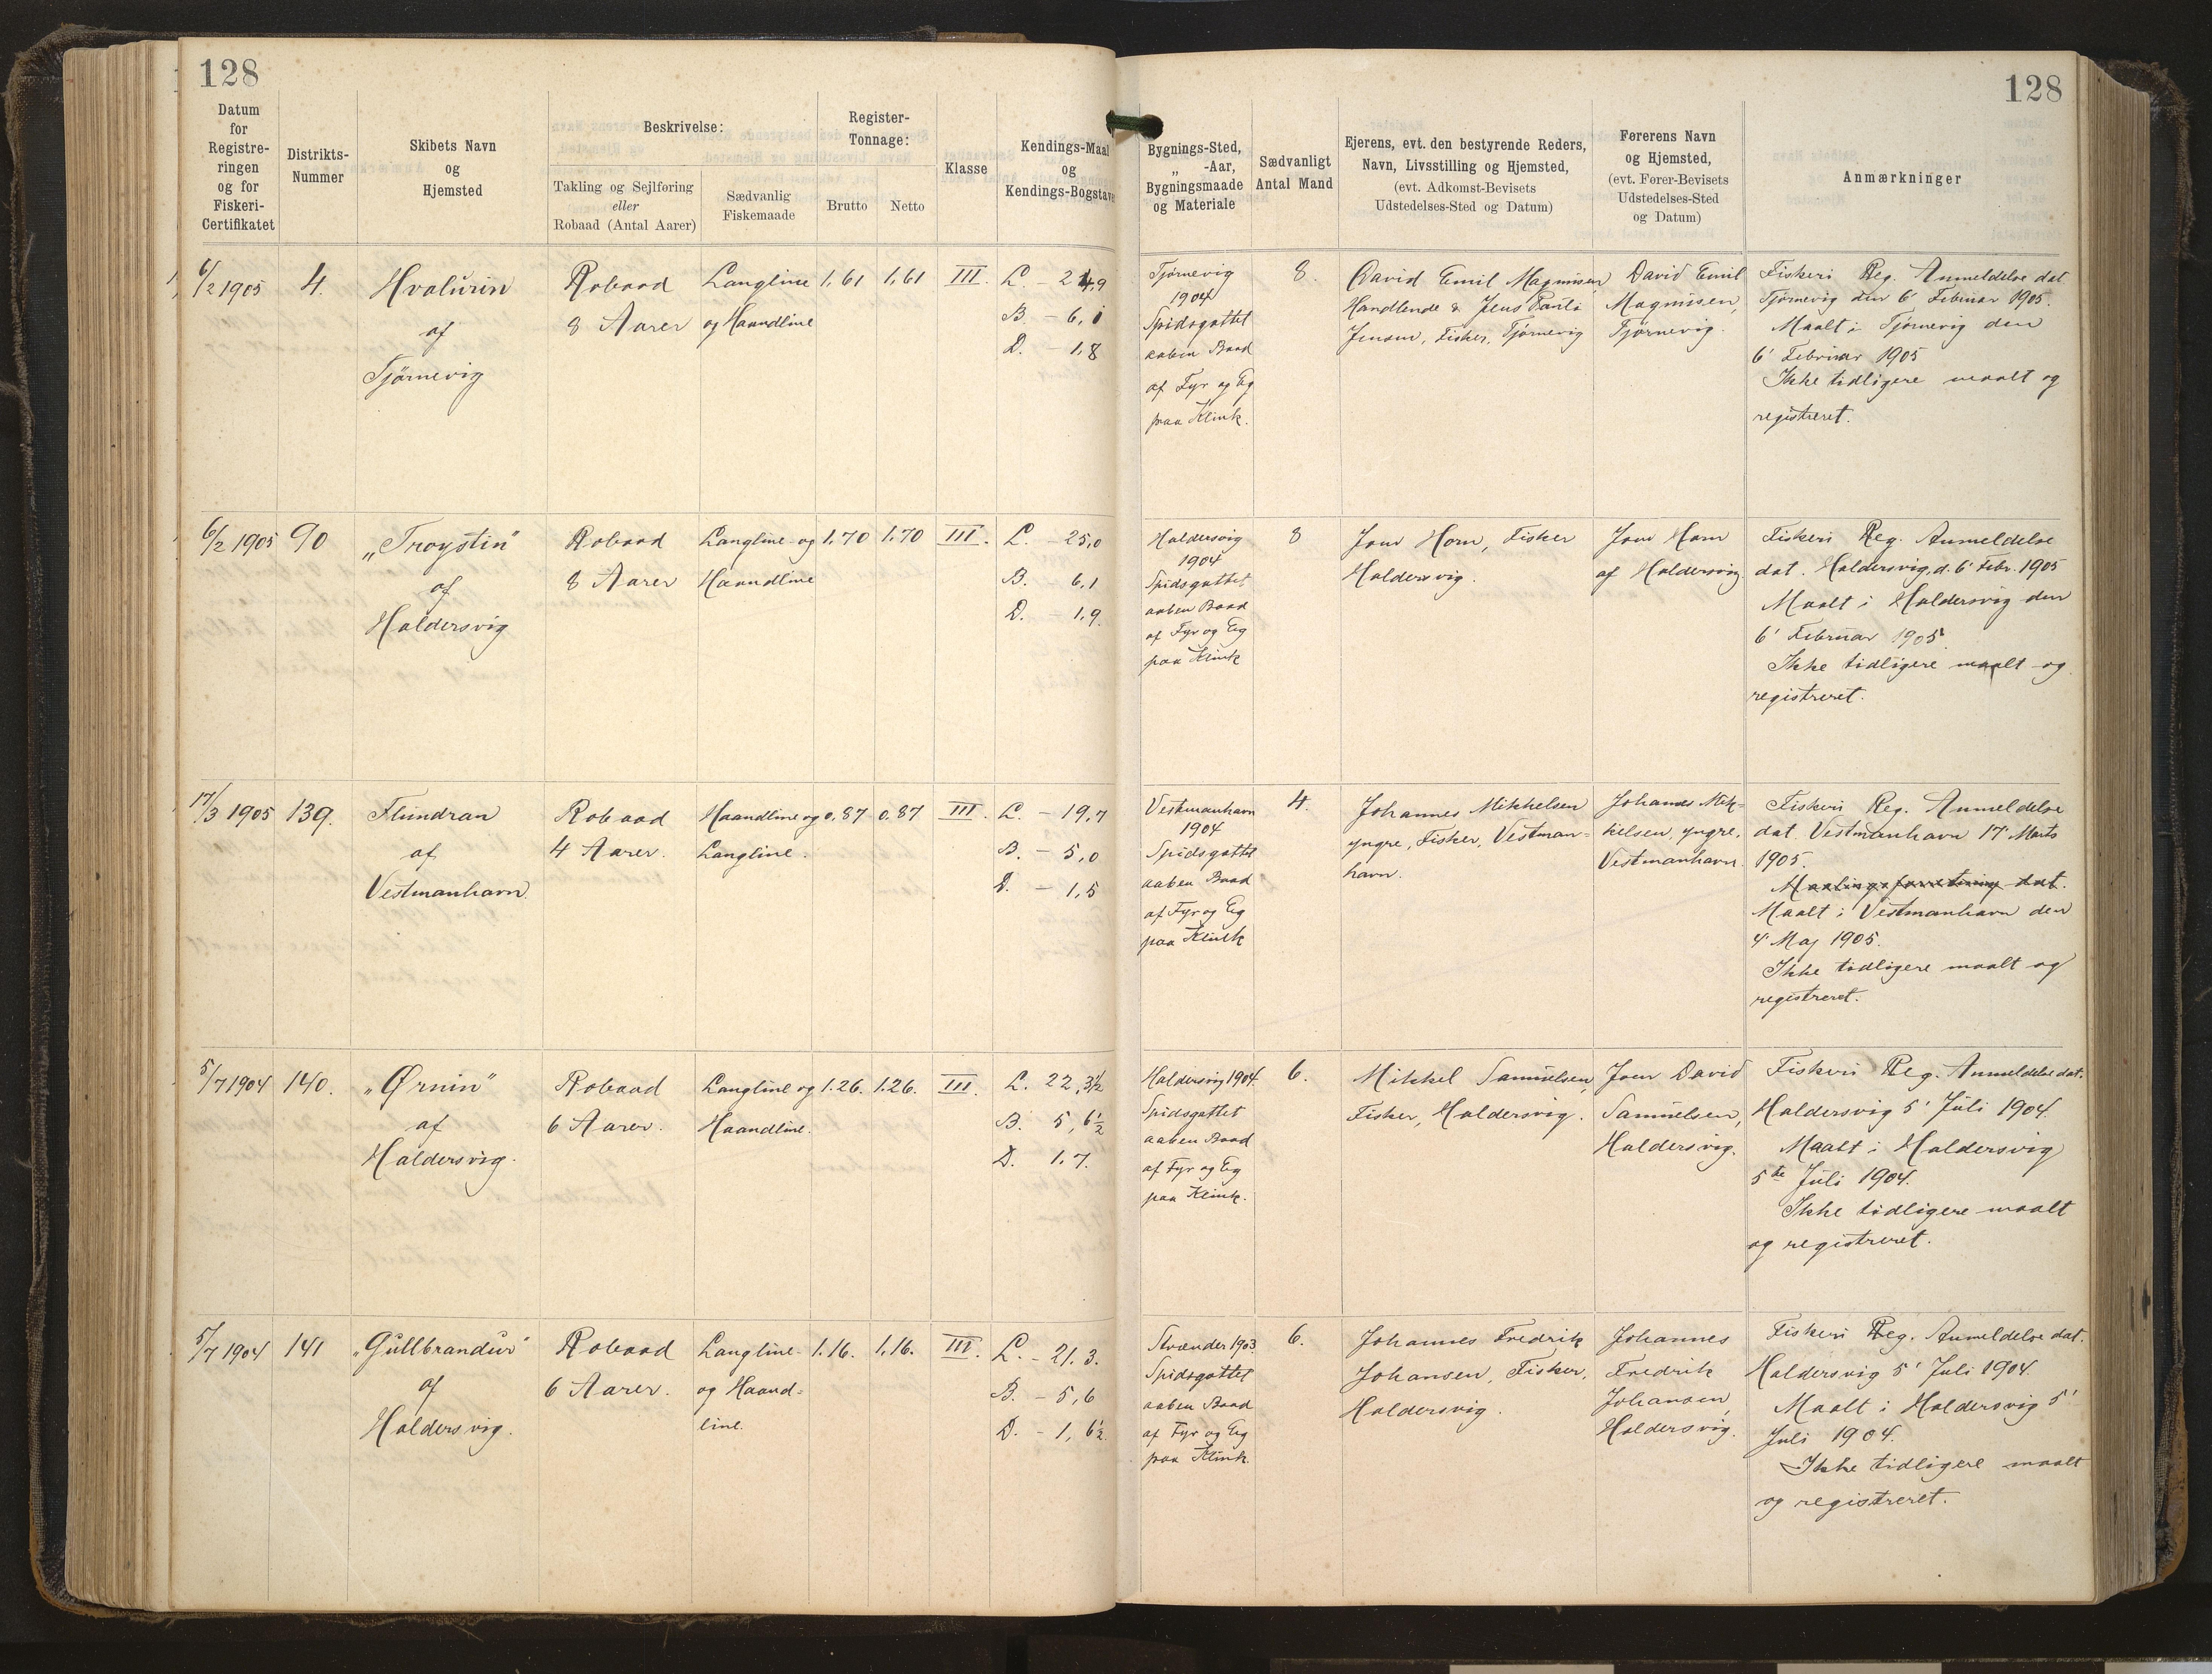 128
128
Datum
for
Registre-
ringen
og for
Fiskeri-
Certifikatet
Distrikts-
Nummer
Skibets Navn
og
Hjemsted
Beskrivelse:
Takling og Sejlføring
eller
Robaad (Antal Aarer)
Sædvanlig
Fiskemaade
Register-
Tonnage:
Brutto
Netto
Klasse
Kendings-Maal
og
Kendings-Bogstaver
Bygnings-Sted,
„ -Aar,
Bygningsmaade
og Materiale
Sædvanligt
Antal Mand
Ejerens, evt. den bestyrende Reders,
Navn, Livsstilling og Hjemsted,
(evt. Adkomst-Bevisets
Udstedelses-Sted og Datum)
Førerens Navn
og Hjemsted,
(evt. Fører-Bevisets
Udstedelses-Sted
og Datum)
Anmærkninger
6/2 1905
4.
Hvalurin
af
Tjørnevig
Robaad
8 Aarer
Langline
og Haandline
1,61
1,61
III.
L. - 24,9
B. - 6,1
D. - 1,8
Tjørnevig
1904
Spidsgattet
aaben Baad
af Fyr og Eg
paa Klink.
8.
David Emil Magnusen
Handlende & Jens Pauli
Jensen, Fisker, Tjørnevig
David Emil
Magnusen,
Tjørnevig.
Fiskeri Reg. Anmeldelse dat
Tjørnevig den 6' Februar 1905.
Maalt i Tjørnevig den
6' Februar 1905
Ikke tidligere maalt og
registreret.
6/2 1905
90
„Troystin"
af
Haldersvig
Robaad
8 Aarer
Langline og
Haandline
1,70
1,70
III.
L. - 25,0
B. - 6,1
D. - 1,9.
Haldersvig
1904
Spidsgattet
aaben Baad
af Fyr og Eg
paa Klink
8
Joen Horn, Fisker
Haldersvig.
Joen Horn
af Haldersvig
Fiskeri Reg. Anmeldelse
dat. Haldersvig, d. 6' Febr. 1905
Maalt i Haldersvig den
6' Februar 1905.
Ikke tidligere maalt og
registreret.
17/3 1905
139.
Flundran
af
Vestmanhavn.
Robaad
4 Aarer.
Haandline og
Langline.
0,87
0,87
III.
L. - 19,7
B. - 5,0
D. - 1,5
Vestmanhavn
1904
Spidsgattet
aaben Baad
af Fyr og Eg
paa Klink
4.
Johannes Mikkelsen
yngre, Fisker, Vestman=
havn.
Johannes Mik=
kelsen, yngre,
Vestmanhavn.
Fiskeri Reg. Anmeldelse
dat. Vestmanhavn 17' Marts
1905.
Maalingsforretning dat.
Maalt i Vestmanhavn den
4' Maj 1905.
Ikke tidligere maalt og
registreret.
5/7 1904
140.
„Ørnin"
af
Haldersvig.
Robaad
6 Aarer.
Langline og
Haandline.
1.26.
1.26.
III.
L. 22,3½
B. 5,6½
D. 1,7.
Haldersvig 1904.
Spidsgattet
aaben Baad
af Fyr og Eg
paa Klink.
6.
Mikkel Samuelsen,
Fisker, Haldersvig.
Joen David
Samuelsen,
Haldersvig.
Fiskeri Reg. Anmeldelse dat.
Haldersvig 5' Juli 1904.
Maalt i Haldersvig
5te Juli 1904.
Ikke tidligere maalt
og registreret.
5/7 1904
141
„Gullbrandur"
af
Haldersvig.
Robaad
6 Aarer.
Langline
og Haand=
line.
1.16.
1,16.
III.
L. - 21.3.
B. - 5,6
D. - 1,6½
Strænder 1903
Spidsgattet
aaben Baad
af Fyr og Eg
paa Klink.
6.
Johannes Fredrik
Johansen, Fisker,
Haldersvig.
Johannes
Fredrik
Johansen,
Haldersvig.
Fiskeri Reg. Anmeldelse dat.
Haldersvig 5' Juli 1904.
Maalt i Haldersvig 5'
Juli 1904.
Ikke tidligere maalt
og registreret.